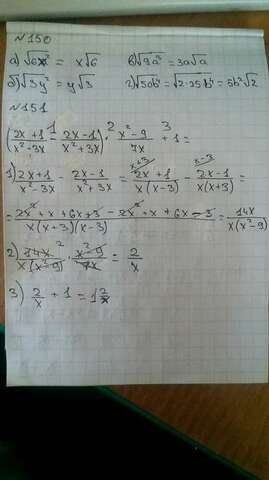 №150
а) √6x² = x√6 в) √9a² = 3a√a
б) √3y² = y√3 г) √50b⁴ = √2·25b⁴ = 5b²√2
№151
(2x+1/x²-3x - 2x-1/x²+3x) · x²-9/7x + 1 =
1) 2x+1/x²-3x - 2x-1/x²+3x = 2x+1/x(x-3) - 2x-1/x(x+3) =
= 2x²+x+6x+3-2x²+x+6x-3/x(x+3)(x-3) = 14x/x(x²-9)
2) 14x/x(x²-9) · x²-9/7x = 2/x
3) 2/x + 1 = 1 2/x